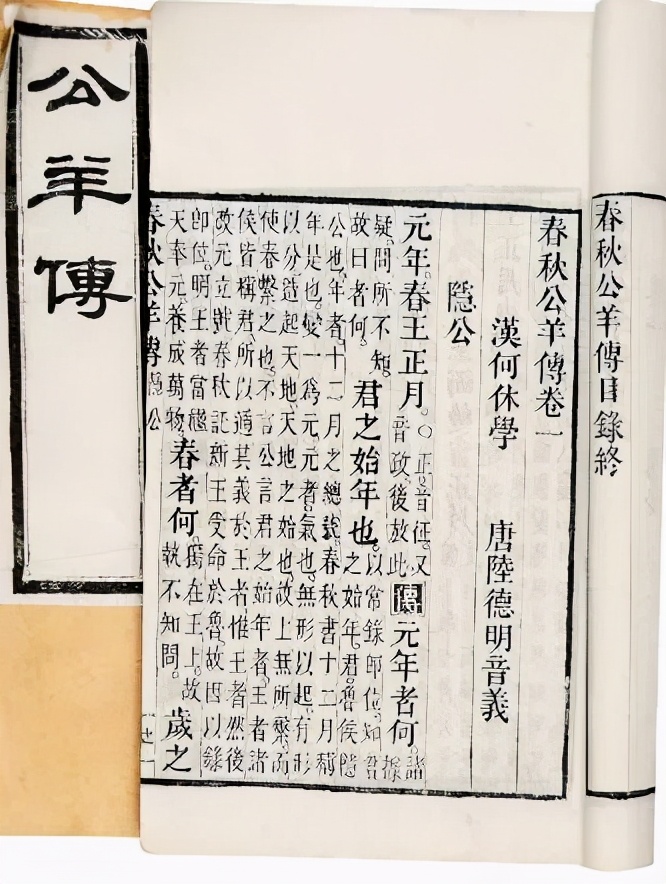 春秋公羊傳目錄終
春秋公羊傳卷一
漢何休學　唐陸德明音義
隱公
元年。春王正月。○正音征。又音政。後放此傳元年者何。諸據
疑。問所不知。故曰者何。君之始年也。以常錄即位。知君之始年。君。魯侯隱
公也。年者。十二月之總號。春秋書十二月稱
年是也。變一爲元。元者。氣也。無形以起。有形
以分。造起天地。天地之始也。故上無所繫。而
使春繫之也。不言公。言君之始年者。王者諸
侯皆稱君。所以通其義於王者。惟王者然後
改元立號。春秋託新王受命於魯。故因以錄
即位。明王者當繼天奉元。養成萬物。春者何。獨在王上。故執不知問。歲之
春秋公羊傳 隱公
公羊傳